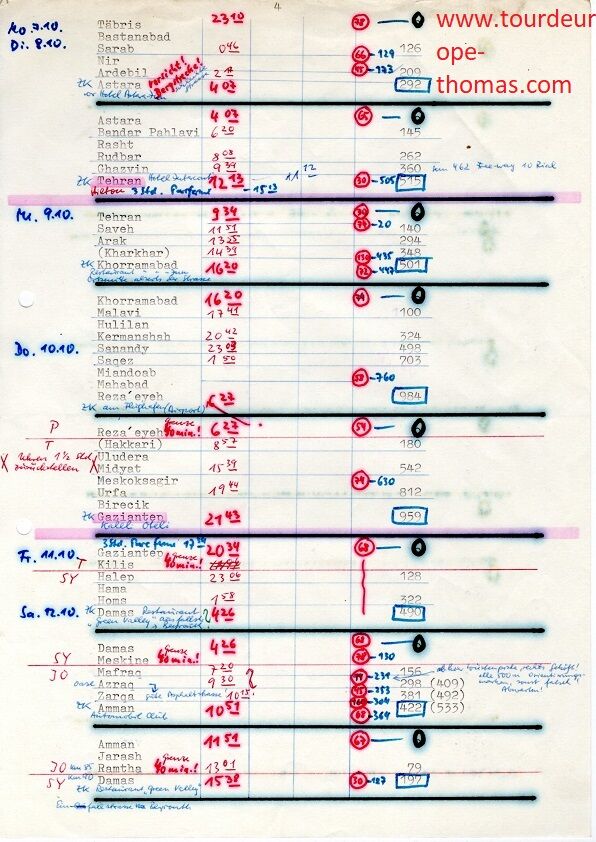 4
www.tourdeur
ope-
thomas.com
Mo 7.10. Täbris 23 10 0
Di. 8.10. Bastanabad
Sarab 0 46 126
Nir 129
Ardebil 209
ZK Astara 4 07 292
Vorsicht! Bergstrecke!
Astara 4 07 65 0
Bandar Pahlavi 6 20 145
Rasht
Rudbar 8 08 262
Ghazvin 9 34 360 km 462 Freeway 10 Rial
ZK Tehran 12 13 505 515
Hilton 3 Std. Parc ferme 15 13
Mi. 9.10. Tehran 9 34 0
Saveh 11 51 20 140
Arak 13 25 294
(Kharkhar) 14 39 435 348
ZK Khorramabad 16 20 447 501
Khorramabad 16 20 0
Malavi 17 41 100
Hulilan
Kermanshah 20 42 324
Do. 10.10. Sanandy 23 08 498
Saqez 1 50 703
Miandoab
Mahabad 760
Reza´eyeh 6 27 984
ZK am Flughafen (Airport)
P Reza´eyeh Grenze 40 min.! 6 27 54 0
T (Hakkari) 8 57 180
Uhren 1½ Std. zurückstellen
Uludera
Midyat 15 39 542
Meskoksagir 74 630
Urfa 19 44 812
Birecik
ZK Gaziantep 21 43 959
Kaleli Oteli
3 Std. Parc ferme 17 34
Fr. 11.10. Gaziantep 20 34 68 0
T Kilis Grenze 40 min.!
SY Halep 23 06 128
Hama
Homs 1 58 322
Sa. 12.10. ZK Damas Restaurant 4 26 490
"Green Valley"
Damas 4 26 68 0
SY Meskine Grenze 40 min.! 130
JO Mafraq 7 20 239 156
Azraq 9 30 253 298 (409)
Zarqa gute Asphaltstrasse 10 15 304 381 (492)
ZK Amman 10 51 369 422 (533)
Automobil Club
Amman 11 51 67 0
Jarash
JO km 85 Ramtha Grenze 40 min.! 13 01 79
SY km 90 Damas 15 38 30 187 197
ZK Restaurant "Green Valley"